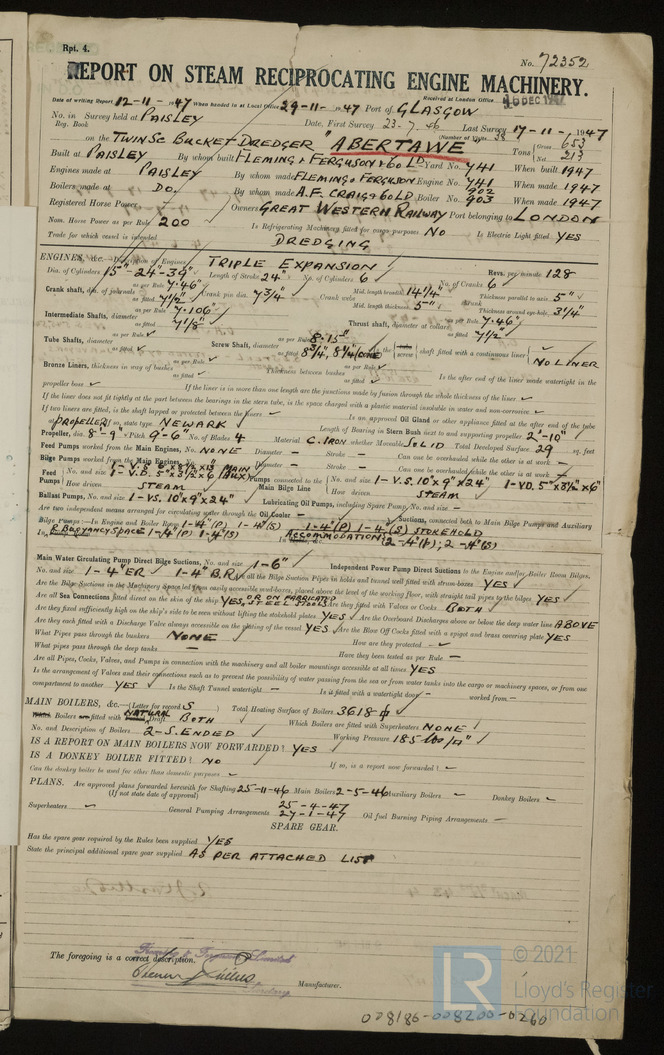 Rpt. 4.
No. 72352
REPORT ON STEAM RECIPROCATING ENGINE MACHINERY.
Received at London Office 16 DEC 1947
Date of writing Report 12-11-1947 When handed in at Local Office 29-11-1947 Port of GLASGOW
No. in Survey held at PAISLEY Date, First Survey 23-7-46 Last Survey 17-11-1947
Reg. Book (Number of Visits 38
on the TWIN SC BUCKET DREDGER "ABERTAWE" Tons Gross 653 Net 213
Built at PAISLEY By whom built FLEMING & FERGUSON & Co LD Yard No. 741 When built 1947
Engines made at PAISLEY By whom made FLEMING & FERGUSON Engine No. 741 When made 1947
Boilers made at DO. By whom made A.F. CRAIG & Co LD Boiler No. 902 903 When made 1947
Registered Horse Power Owners GREAT WESTERN RAILWAY Port belonging to LONDON
Nom. Horse Power as per Rule 200 Is Refrigerating Machinery fitted for cargo purposes NO Is Electric Light fitted YES
Trade for which vessel is intended DREDGING
ENGINES, &c.—Description of Engines TRIPLE EXPANSION Revs. per minute 128
Dia. of Cylinders 15"-24"-39" Length of Stroke 24" No. of Cylinders 6 No. of Cranks 6
Crank shaft, dia. of journals as per Rule 7.46" as fitted 7½" Crank pin dia. 7¾" Crank webs Mid. length breadth 14¼" Mid. length thickness 5" shrunk Thickness parallel to axis 5" Thickness around eye-hole 3¼"
Intermediate Shafts, diameter as per Rule 7.106" as fitted 7⅛" Thrust shaft, diameter at collars as per Rule 7.46" as fitted 7½"
Tube Shafts, diameter as per Rule as fitted Screw Shaft, diameter as per Rule 8.15" as fitted 8¾", 8¼" CONE Is the screw shaft fitted with a continuous liner NO LINER
Bronze Liners, thickness in way of bushes as per Rule as fitted Thickness between bushes as per Rule as fitted Is the after end of the liner made watertight in the
propeller boss If the liner is in more than one length are the junctions made by fusion through the whole thickness of the liner
If the liner does not fit tightly at the part between the bearings in the stern tube, is the space charged with a plastic material insoluble in water and non-corrosive
If two liners are fitted, is the shaft lapped or protected between the liners Is an approved Oil Gland or other appliance fitted at the after end of the tube
If so, state type NEWARK Length of Bearing in Stern Bush next to and supporting propeller 2'-10"
Propeller, dia. 8'-9" Pitch 9'-6" No. of Blades 4 Material C. IRON whether Moveable SOLID Total Developed Surface 29 sq. feet
Feed Pumps worked from the Main Engines, No. NONE Diameter — Stroke — Can one be overhauled while the other is at work —
Bilge Pumps worked from the Main Engines, No. Diameter — Stroke — Can one be overhauled while the other is at work —
Feed Pumps No. and size 1-V.D. 5"x3½"x6" (AUX) Pumps connected to the Main Bilge Line No. and size 1-V.S. 10"x9"x24" 1-V.D. 5"x3½"x6"
How driven STEAM How driven STEAM
Ballast Pumps, No. and size 1-V.S. 10"x9"x24" Lubricating Oil Pumps, including Spare Pump, No. and size —
Are two independent means arranged for circulating water through the Oil Cooler — Suctions, connected both to Main Bilge Pumps and Auxiliary
Bilge Pumps:—In Engine and Boiler Room 1-4"(P) 1-4"(S) 1-4"(P) 1-4"(S) STOKEHOLD
In BUOYANCY SPACE 1-4"(P) 1-4"(S) ACCOMMODATION 2-4"(P); 2-4"(S)
Main Water Circulating Pump Direct Bilge Suctions, No. and size 1-6" Independent Power Pump Direct Suctions to the Engine and/or Boiler Room Bilges,
No. and size 1-4" E.R. 1-4" B.R. Are all the Bilge Suction Pipes in holds and tunnel well fitted with strum-boxes YES
Are the Bilge Suctions in the Machinery Space led from easily accessible mud-boxes, placed above the level of the working floor, with straight tail pipes to the bilges YES
Are all Sea Connections fitted direct on the skin of the ship YES, OR ON FABRICATED STEEL STOOLS Are they fitted with Valves or Cocks BOTH
Are they fixed sufficiently high on the ship's side to be seen without lifting the stokehold plates YES Are the Overboard Discharges above or below the deep water line ABOVE
Are they each fitted with a Discharge Valve always accessible on the plating of the vessel YES Are the Blow Off Cocks fitted with a spigot and brass covering plate YES
What Pipes pass through the bunkers NONE How are they protected —
What pipes pass through the deep tanks — Have they been tested as per Rule —
Are all Pipes, Cocks, Valves, and Pumps in connection with the machinery and all boiler mountings accessible at all times YES
Is the arrangement of Valves and their connections such as to prevent the possibility of water passing from the sea or from water tanks into the cargo or machinery spaces, or from one
compartment to another YES Is the Shaft Tunnel watertight — Is it fitted with a watertight door — worked from —
MAIN BOILERS, &c.—(Letter for record S) Total Heating Surface of Boilers 3618
Boilers fitted with NATURAL Draft BOTH Which Boilers are fitted with Superheaters NONE
No. and Description of Boilers 2-S. ENDED Working Pressure 185 lbs/□"
IS A REPORT ON MAIN BOILERS NOW FORWARDED? YES
IS A DONKEY BOILER FITTED? NO If so, is a report now forwarded?
Can the donkey boiler be used for other than domestic purposes
PLANS. Are approved plans forwarded herewith for Shafting 25-11-46 Main Boilers 2-5-46 Auxiliary Boilers — Donkey Boilers
(If not state date of approval)
Superheaters General Pumping Arrangements 25-4-47 27-1-47 Oil fuel Burning Piping Arrangements —
SPARE GEAR.
Has the spare gear required by the Rules been supplied YES
State the principal additional spare gear supplied AS PER ATTACHED LIST
The foregoing is a correct description.
Fleming & Ferguson Limited
Secretary
Manufacturer.
© 2021
LR
Lloyd's Register
Foundation
008186-008200-0260